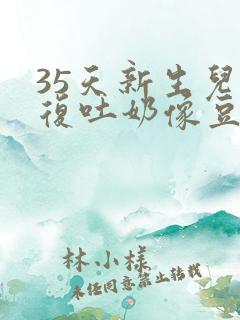 35天新生兒
復吐奶像豆
林小樣
未经同意禁止转载